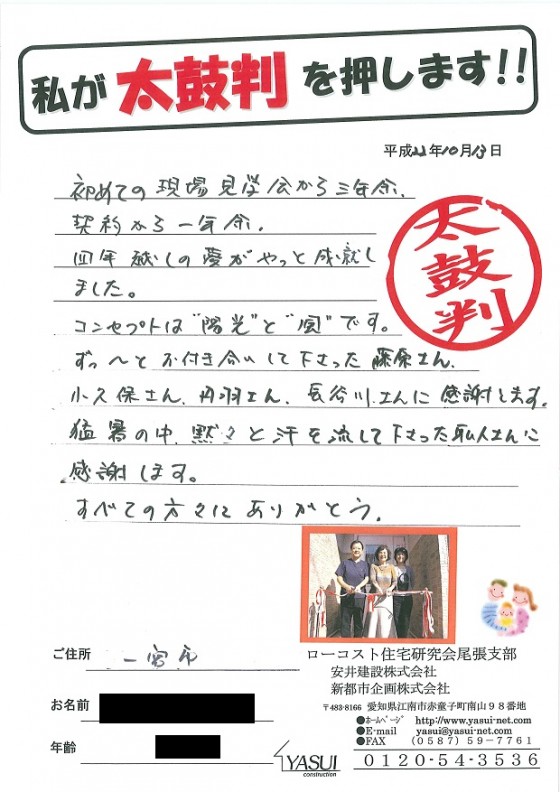 私が太鼓判を押します!!
平成22年10月13日
初めての現場見学会から三年余、
契約から一年余、
四年越しの夢がやっと成就し
ました。
コンセプトは"陽光"と"風"です。
ずっ〜とお付き合いして下さった藤原さん、
小久保さん、丹羽さん、長谷川さんに感謝します。
猛暑の中、黙々と汗を流して下さった職人さんに
感謝します。
すべての方々にありがとう。
太鼓判
ご住所 一宮市
お名前
年齢
ローコスト住宅研究会尾張支部
安井建設株式会社
新都市企画株式会社
〒483-8166 愛知県江南市赤童子町南山98番地
●ホームページ http://www.yasui-net.com
●E-mail yasui@yasui-net.com
●FAX (0587)59-7761
0120-54-3536
YASUI
construction